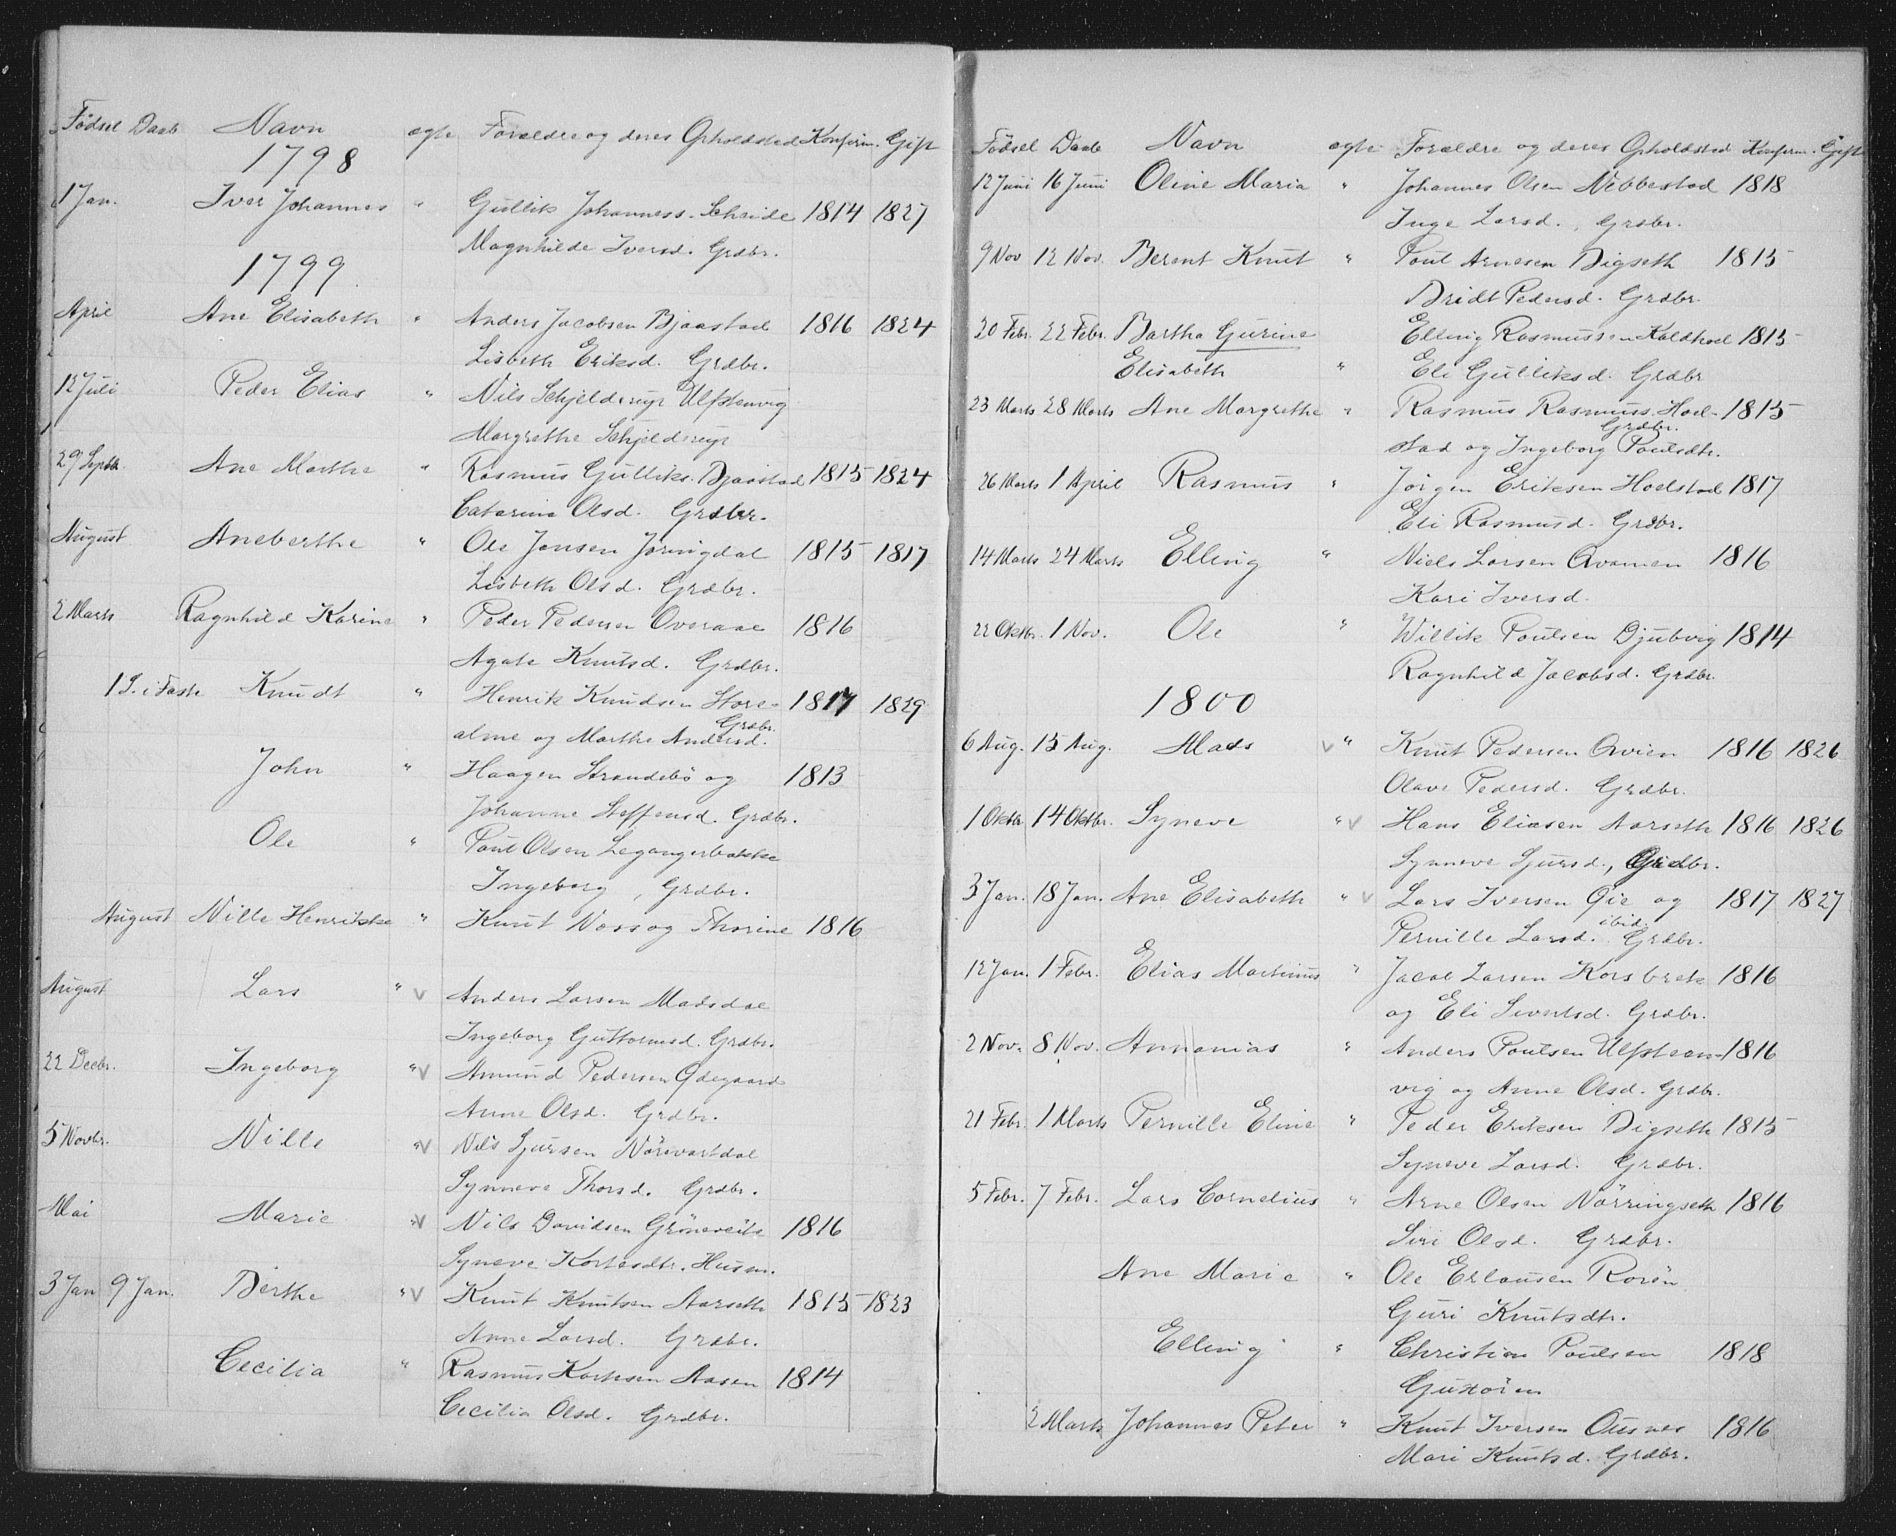 Fødsel Daab Navn ægte Forældre og deres Opholdsted Konfirm. Gift
1798
1 Jan. Iver Johannes " Gullik Johanness. Scheide 1814 1827
Magnhilde Iversd. Grdbr.
1799
April Ane Elisabeth " Anders Jacobsen Bjaastad 1816 1824
Lisbeth Eriksd. Grdbr.
12 Juli Peder Elias " Nils Schjelderup Ulfstenvig
Margrethe Schjelderup
29 Septbr. Ane Marthe " Rasmus Gulliks. Bjaastad 1815 1824
Catarina Olsd. Grdbr.
August Aneberthe " Ole Jonsen Jøringdal 1815 1817
Lisbeth Olsd. Grdbr.
2 Marts Ragnhild Karine " Peder Pedersen Overaae 1816
Agate Knutsd. Grdbr.
1 S. i Faste Knudt " Henrik Knudsen Store- 1817 1829
alme og Marthe Andersd. Grdbr.
John " Haagen Strandebø og 1813
Johanne Steffensd. Grdbr.
Ole " Poul Olsen Legangerbakke
Ingeborg , Grdbr.
August Nille Henrikke " Knut Voss og Thorine 1816
August Lars " v Anders Larsen Madsdal
Ingeborg Guttormsd. Grdbr.
22 Decbr. Ingeborg " v Amund Pedersen Ødegaard
Anne Olsd. Grdbr.
5 Novbr. Nille " v Nils Sjursen Nörevartdal
Synneve Thorsd. Grdbr.
Mai Marie " v Nils Davidsen Gröneveite 1816
Syneve Kortesdtr. Husm.
3 Jan 9 Jan. Berthe " v Knut Knutsen Aarseth 1815 1823
Anne Larsd. Grdbr.
Cecilia " Rasmus Kortesen Aasen 1814
Cecilia Olsd. Grdbr.
Födsel Daab Navn ægte Forældre og deres Opholdsted Konfirm. Gift
12 Juni 16 Juni Oline Maria " Johannes Olsen Nebbestad 1818
Inge Larsd., Grdbr.
9 Nov 12 Nov. Berent Knut " Poul Arnesen Digseth 1815
Bridt Pedersd. Grdbr.
20 Febr. 22 Febr. Bartha Gurine Elling Rasmussen Kaldhol 1815
Elisabeth " Eli Gulliksd. Grdbr
23 Marts 28 Marts Ane Margrethe " Rasmus Rasmuss. Hael- 1815
stad og Ingeborg Poulsdtr. Grdbr.
26 Marts 1 April Rasmus " Jörgen Eriksen Haelstad 1817
Eli Rasmusd. Grdbr.
14 Marts 24 Marts Elling " Niels Larsen Qvamen 1816
Kari Iversd.
22 Oktbr. 1 Nov. Ole " Willik Poulsen Djuberg 1814
Ragnhild Jacobsd. Grdbr.
1800
6 Aug. 15 Aug. Mads v " Knut Pedersen Qvien 1816 1826
Olave Pedersd. Grdbr.
1 Oktbr. 14 Oktbr. Syneve " v Hans Eliasen Aarseth 1816 1826
Synneve Sjursd., Grdbr.
3 Jan. 18 Jan. Ane Elisabeth " v Lars Iversen Øie og 1817 1827
Pernille Larsd. ibid. Grdbr.
12 Jan. 1 Febr. Elias Martinus " Jacob Larsen Korsbrek 1816
og Eli Sivertsd. Grdbr.
2 Nov. 8 Nov. Annanias " Anders Poulsen Ulfsteen- 1816
vig og Anne Olsd. Grdbr.
21 Febr. 1 Marts Pernille Eline " Peder Eriksen Digseth 1815
Syneve Larsd. Grdbr.
5 Febr. 7 Febr. Lars Cornelius " Arne Olsen Nörringseth 1816
Siri Olsd. Grdbr.
Ane Marie " Ole Erlansen Rorön
Guri Knutsdtr.
Elling " Christian Poulsen 1818
2 Marts Johannes Peter " Knut Iversen Ousnes 1816
Mari Knutsd. Grdbr.